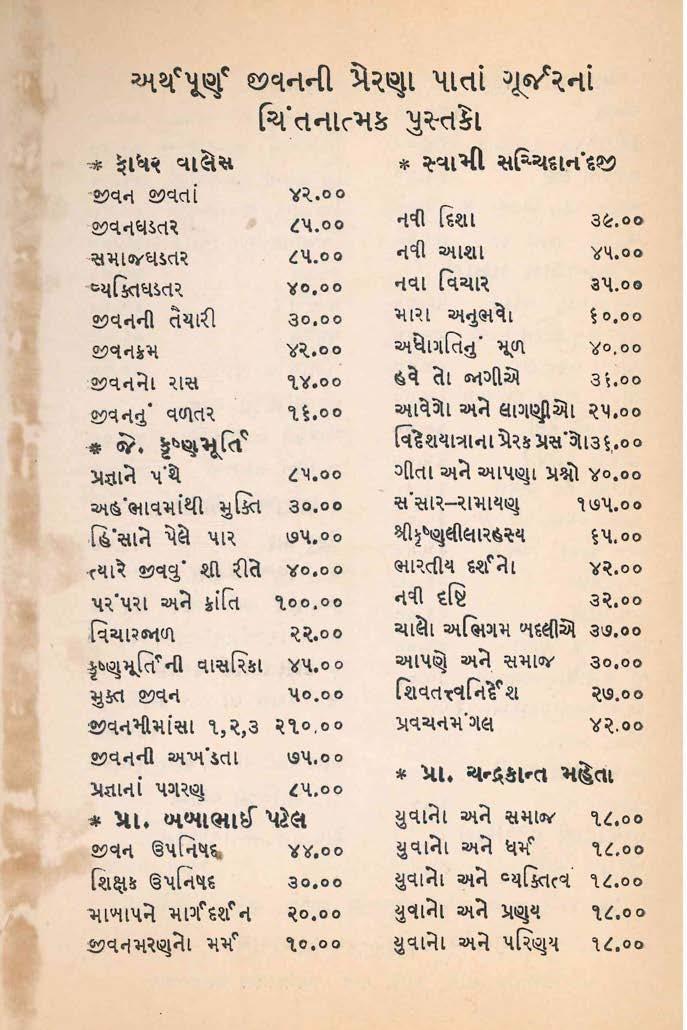 અર્થપૂર્ણ જીવનની પ્રેરણા પાતાં ગૂર્જરનાં
ચિંતનાત્મક પુસ્તકો
* ફાધર વાલેસ
જીવન જીવતાં ૪૨.૦૦
જીવનઘડતર ૮૫.૦૦
સમાજઘડતર ૮૫.૦૦
વ્યક્તિઘડતર ૪૦.૦૦
જીવનની તૈયારી ૩૦.૦૦
જીવનક્રમ ૪૨.૦૦
જીવનનો રાસ ૧૪.૦૦
જીવનનું વળતર ૧૬.૦૦
* જે. કૃષ્ણમૂર્તિ
પ્રજ્ઞાને પંથે ૮૫.૦૦
અહંભાવમાંથી મુક્તિ ૩૦.૦૦
હિંસાને પેલે પાર ૭૫.૦૦
ત્યારે જીવવું શી રીતે ૪૦.૦૦
પરંપરા અને ક્રાંતિ ૧૦૦.૦૦
વિચારજાળ ૨૨.૦૦
કૃષ્ણમૂર્તિની વાસરિકા ૪૫.૦૦
મુક્ત જીવન ૫૦.૦૦
જીવનમીમાંસા ૧,૨,૩ ૨૧૦.૦૦
જીવનની અખંડતા ૭૫.૦૦
પ્રજ્ઞાનાં પગરણ ૮૫.૦૦
* પ્રા. બબાભાઈ પટેલ
જીવન ઉપનિષદ ૪૪.૦૦
શિક્ષક ઉપનિષદ ૩૦.૦૦
માબાપને માર્ગદર્શન ૨૦.૦૦
જીવનમરણનો મર્મ ૧૦.૦૦
* સ્વામી સચ્ચિદાનંદજી
નવી દિશા ૩૯.૦૦
નવી આશા ૪૫.૦૦
નવા વિચાર ૩૫.૦૦
મારા અનુભવો ૬૦.૦૦
અધોગતિનું મૂળ ૪૦.૦૦
હવે તો જાગીએ ૩૬.૦૦
આવેગો અને લાગણીઓ ૨૫.૦૦
વિદેશયાત્રાના પ્રેરક પ્રસંગો ૩૬.૦૦
ગીતા અને આપણા પ્રશ્નો ૪૦.૦૦
સંસાર–રામાયણ ૧૭૫.૦૦
શ્રીકૃષ્ણલીલારહસ્ય ૬૫.૦૦
ભારતીય દર્શનો ૪૨.૦૦
નવી દૃષ્ટિ ૩૨.૦૦
ચાલો અભિગમ બદલીએ ૩૭.૦૦
આપણે અને સમાજ ૩૦.૦૦
શિવતત્ત્વનિર્દેશ ૨૭.૦૦
પ્રવચનમંગલ ૪૨.૦૦
* પ્રા. ચન્દ્રકાન્ત મહેતા
યુવાનો અને સમાજ ૧૮.૦૦
યુવાનો અને ધર્મ ૧૮.૦૦
યુવાનો અને વ્યક્તિત્વ ૧૮.૦૦
યુવાનો અને પ્રણય ૧૮.૦૦
યુવાનો અને પરિણય ૧૮.૦૦